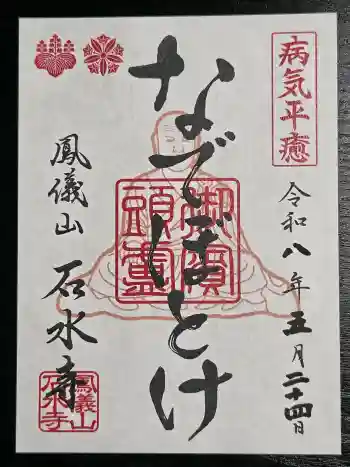 病気平癒
令和八年五月二十四日
なでぼとけ
御賓頭盧
鳳儀山
石水寺
鳳儀山
石水寺